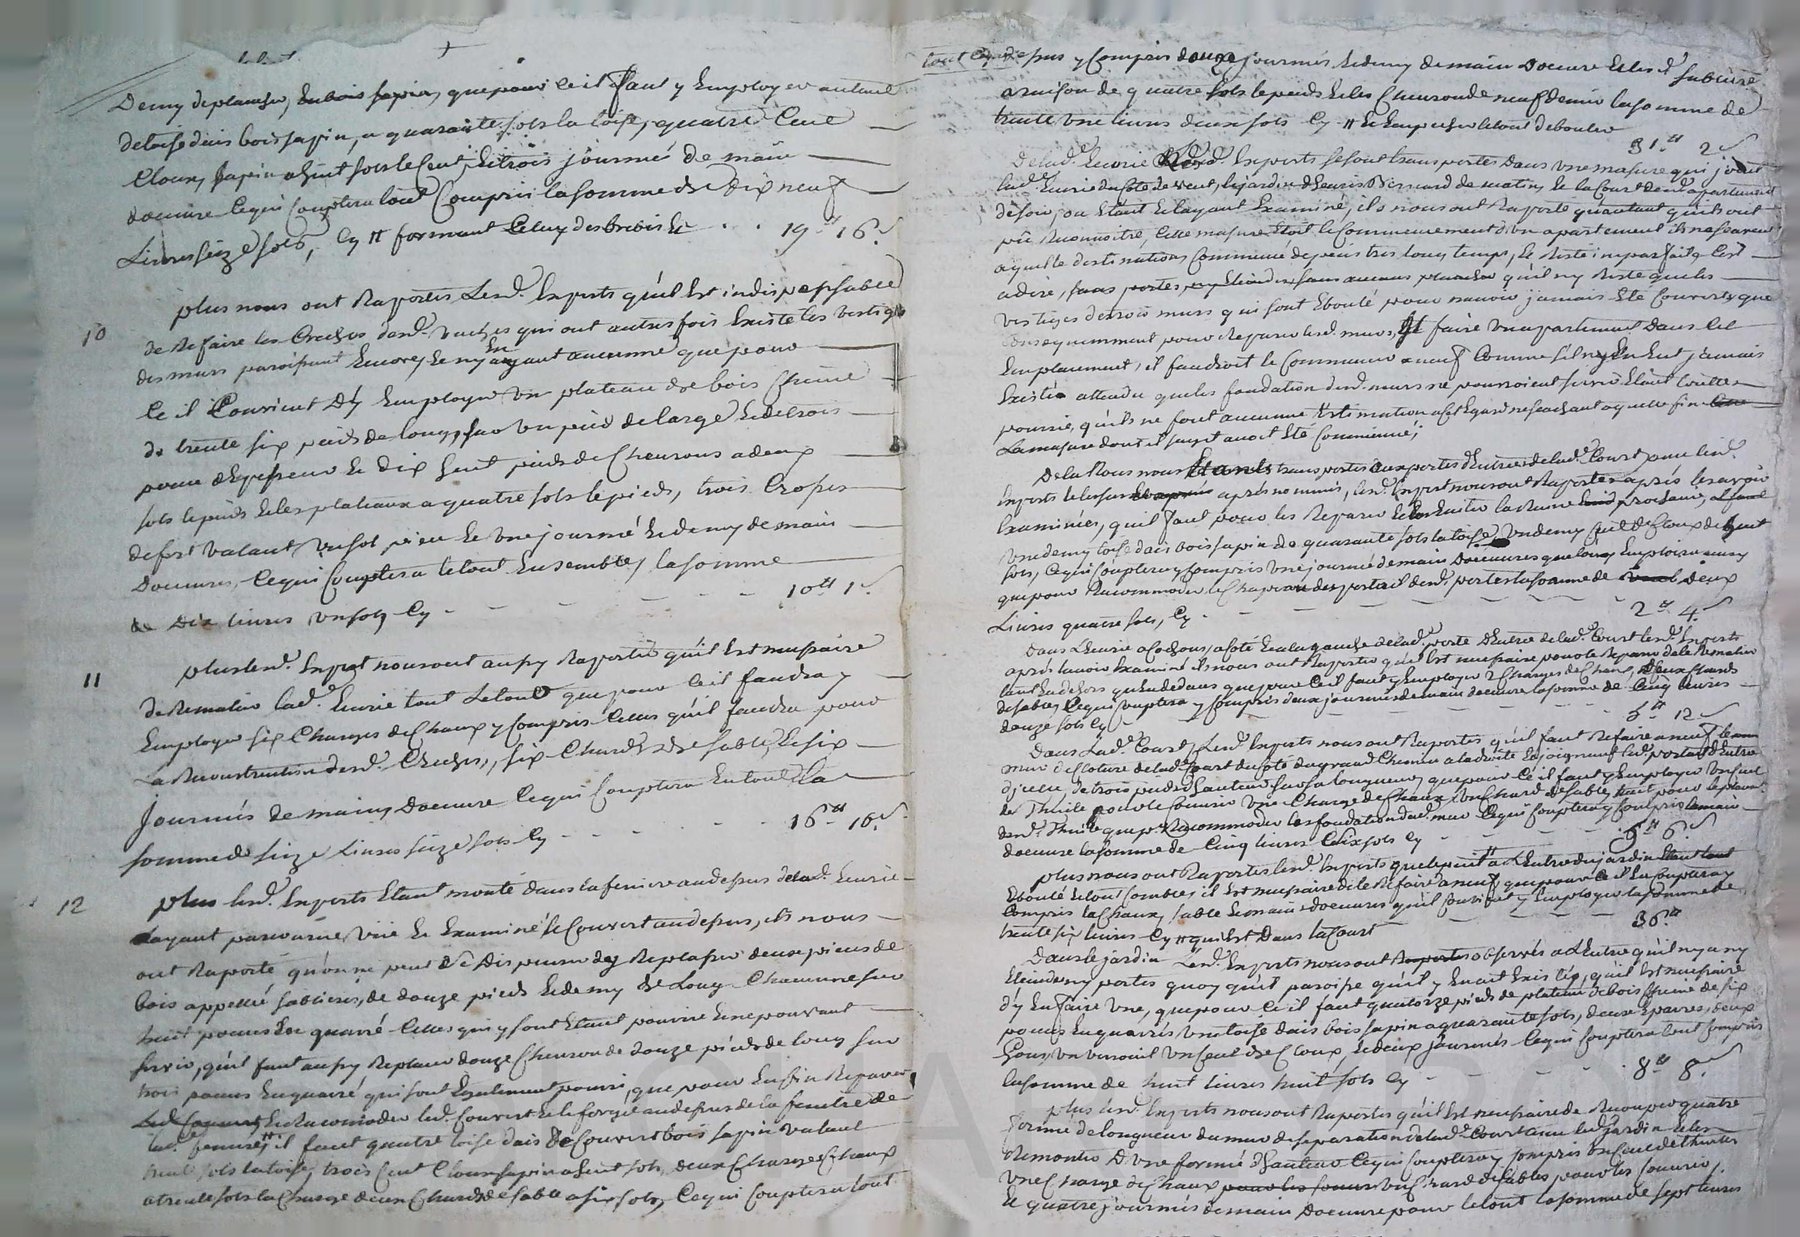 Demy deplancher, Enbois sapin, quepour ce il faut y Employer autant
detoise dais bois sapin, a quarante sols la toise, quatre Cent
Cloux, sapin a huit sols le Cent, Et trois journées de main
doeuvre Ce qui Couptera tout Compris la somme de Dix neuf
Livres seize sols, Cy 
19 16 s
10 plus nous ont Raportés Lesd. Experts qu'il Est indispensable
de Refaire les Creches desd. vaches qui ont autres fois Existé les vestiges
des murs paroissant Encore, Et ny En ayant aucune que pour
Ce il Convient D'y Employer un plateau de bois Chêne
de trente six pieds de long, sur un pied de large Et de trois
pouces d'Epesseur Et Dix huit pieds de Cheurons a deux
sols le pied Et les plateaux a quatre sols le pied, trois
de fert valant un sol piece Et une journée Et demy de main
Doeuvres, Ce qui Couptera le tout Ensemble, la somme
de Dix livres un sol, Cy - - - 10 tt 1 s
11 plus lesd. Expert nous ont aussy Raportés qu'il Est nessaire
de Remaitir lad. Ecurie tout que pour Ce il faudra y
Employer six Charges de Chaux y Compris Celles qu'il faudra pour
La Reconstruction desd. Creches, six Chards de sable, Et six
journées de main, Doeuvre Ce qui Couptera En tout la
somme de seize Livres seize sols Cy - - - 16 tt 16 s
12 plus lesd. Experts Etant monté dans la feniere audesus delad. Ecurie
Layant parcourüe, viré Et Examiné le Couvert audesus, ils nous
ont Raporté qu'on ne peut se Dispenser de Replasser deux pieces de
bois appellé sablieres, de douze pieds Et demy de Long Chacune sur
huit pouces En quarré Celles qui y sont Etant pourrie Et ne pouvant
servir, qu'il faut aussy Replacer douze Cheurons de douze pieds de long sur
trois pouces En quarré qui sont Egalement pourri, que pour Enfin Reparer
Et Racomoder led. Couvert Et le forgié audesus de la fenêtre de
lad. feniere, il faut quatre toise dais de Couvert bois sapin valant
trente sols la toise, trois Cent Cloux sapin a huit sols, deux Charges Chaux
a trente sols la Charge deux Chards de sable a six sols, Ce qui Couptera tout
tout Cy depus y Compris douze journées Et demy de main Doeuvre Et les d. sabliere
a raison de quatre sols le pied Et les Cheurons de neuf denier la somme de
trente une livres deux sols Cy
31 tt 2 s
Delad. Ecurie Lesd. Experts se sont transportés Dans une masure qui joint
lad. Ecurie du coté de vent, le jardin d'heuris Bernard de matin, Et la Court dud. apartement
de soir, ou Etant Et layant Examiné, ils nous ont Raporté qu'autant qu'ils ont
pû Reconnoitre, Cette masure Etoit le Commencement d'un apartement ils ne sçavent
a quelle destination Commencé depuis tres long temps, Et Resté imparfait, C'est
a dire, sans portes, ny sans aucuns plancher qu'il ny Reste que les
vestiges de trois murs qui sont Eboulé pour navoir jamais Eté Couverts que
Consequemment pour Reparer lesd. murs, Et faire un apartement Dans Cet
Emplacement, il faudroit le Commencer a neuf Comme s'il ny En Eut jamais
Existé attendu que les fondation desd. murs ne pourroient servir Etant touttes
pourrie, qu'ils ne font aucune Estimation a Cet Egard ne sachant a quelle fin
La masure dont il s'agit avoit Eté Commencé;
De la Nous nous Etants transportés aux portes d'Entrée delad. Court
Experts apres nommés, lesd. Expert nous ont Raportés apres les avoir
Examinées, qu'il faut pour les Reparer
une demy toise dais bois sapin de quarante sols la toise, un demy Cent de Cloux de huit
sols, Ce qui Couptera y Compris une journée de main Doeuvres
que pour Racommoder le Chapeau des portail desd. portes la somme de Deux
Livres quatre sols, Cy - - - 2 tt 4 s
Dans L'Ecurie a Cochons, a coté Et a la gauche delad. porte D'Entrée delad. Court lesd. Experts
apres lavoir Examiné ils nous ont Raportés qu'il Est nessaire pour la Reparer de la Remaitir
tant En dehors qu'En dedans que pour Ce il faut y Employer 2 Charges de Chaux, deux Chards
de sable, Ce qui Couptera y Compris deux journées de main doeuvre la somme de Cinq Livres
douze sols Cy - - - 5 tt 12 s
Dans Lad. Court, Lesd. Experts nous ont Raportés qu'il faut Refaire a neuf
mur de Cloture delad. Court du coté du grand Chemin a la droite Et joignant led. portail d'Entrée
de trois pieds d'hauteur sur sa longueur, que pour Ce il faut y Employer un Cent
de Thuile pour le Couvrir une Charge de Chaux, un Chard de sable,
Racommoder les fondation dud. mur Ce qui Couptera y Compris la main
doeuvre la somme de Cinq livres six sols Cy 5 tt 6 s
plus nous ont Raportés lesd. Experts que le puit a L'Entrée du jardin Etant tout
Eboulé Et tout Comblé, il Est nessaire de le Refaire a neuf que pour Ce il En Couptera y
Compris la Chaux, sable Et main doeuvres qu'il Convient y Employer la somme de
trente six livres Cy qui Est Dans la Court 36 tt
Dans le jardin Lesd. Experts nous ont observés a L'Entrée qu'il ny a ny
ny portes quoy qu'il paroisse qu'il y En ait Existée, qu'il Est nessaire
d'y En faire une, que pour Ce il faut quatorze pieds de plateau de bois Chêne de six
pouces En quarrés, une toise dais bois sapin a quarante sols, deux Eparres, deux
Gons, un verrouil un Cent de Cloux, Et deux journées Ce qui Couptera tout Compris
la somme de huit livres huit sols Cy - - - 8 tt 8 s
plus lesd. Experts nous ont Raportés qu'il Est nessaire de Recouper quatre
forme de longueur du mur de separation delad. Court avec led. jardin Et les
Remonter D'une forme d'hauteur Ce qui Couptera y Compris un Cent de thuiles
une Charge de Chaux un Chard de sable, pour les Couvrir,
Et quatre journées de main Doeuvre pour le tout la somme de sept livres